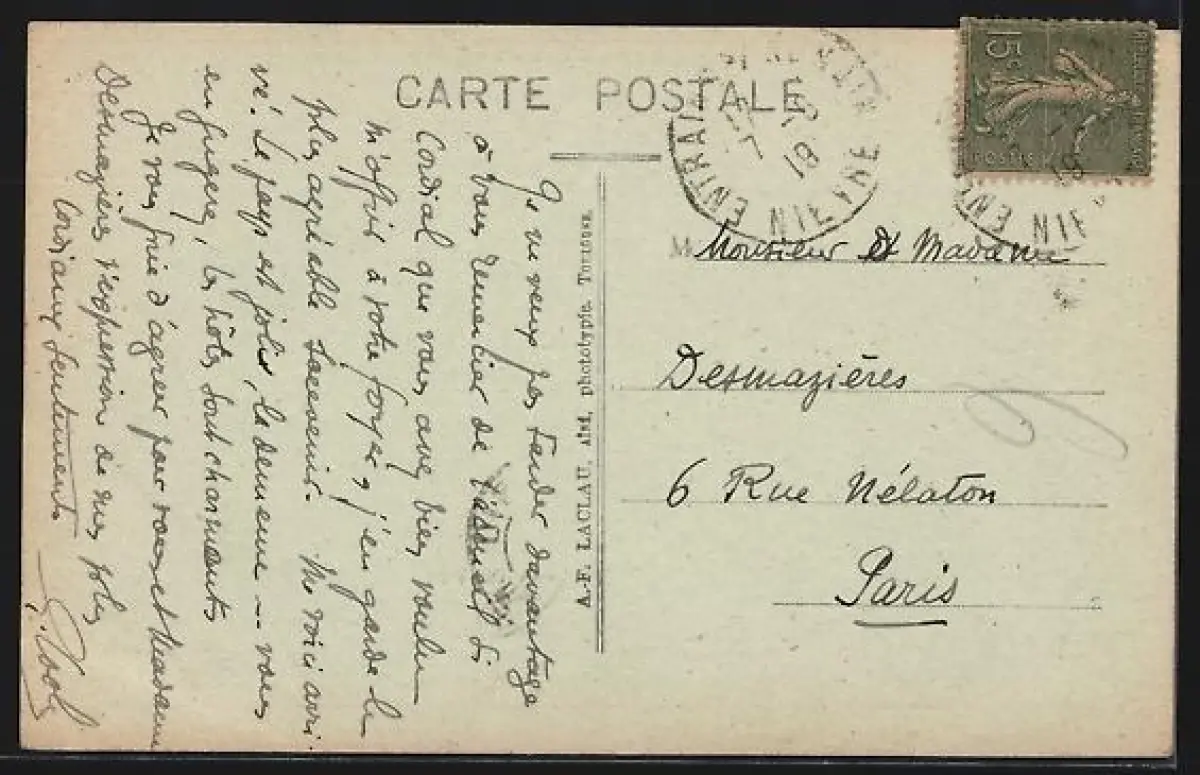 CARTE POSTALE
15c
POSTES
ENTRAI
IN EN
18
Monsieur Et Madame
Desmazières
6 Rue Nélaton
Paris
A.-F. LACLAU, aîné, phototypie. Toulouse.
Je ne veux pas tarder davantage
à vous remercier de si
Cordial que vous avez bien voulu
m'offrir à votre foyer, j'en garde le
plus agréable souvenir. Me voici arri
vé. Le pays est joli, la demeure -- vous
en jugerez, les hôtes sont charmants
Je vous prie d'agréer pour vous et Madame
Desmazières l'expression de mes plus
Cordiaux sentiments